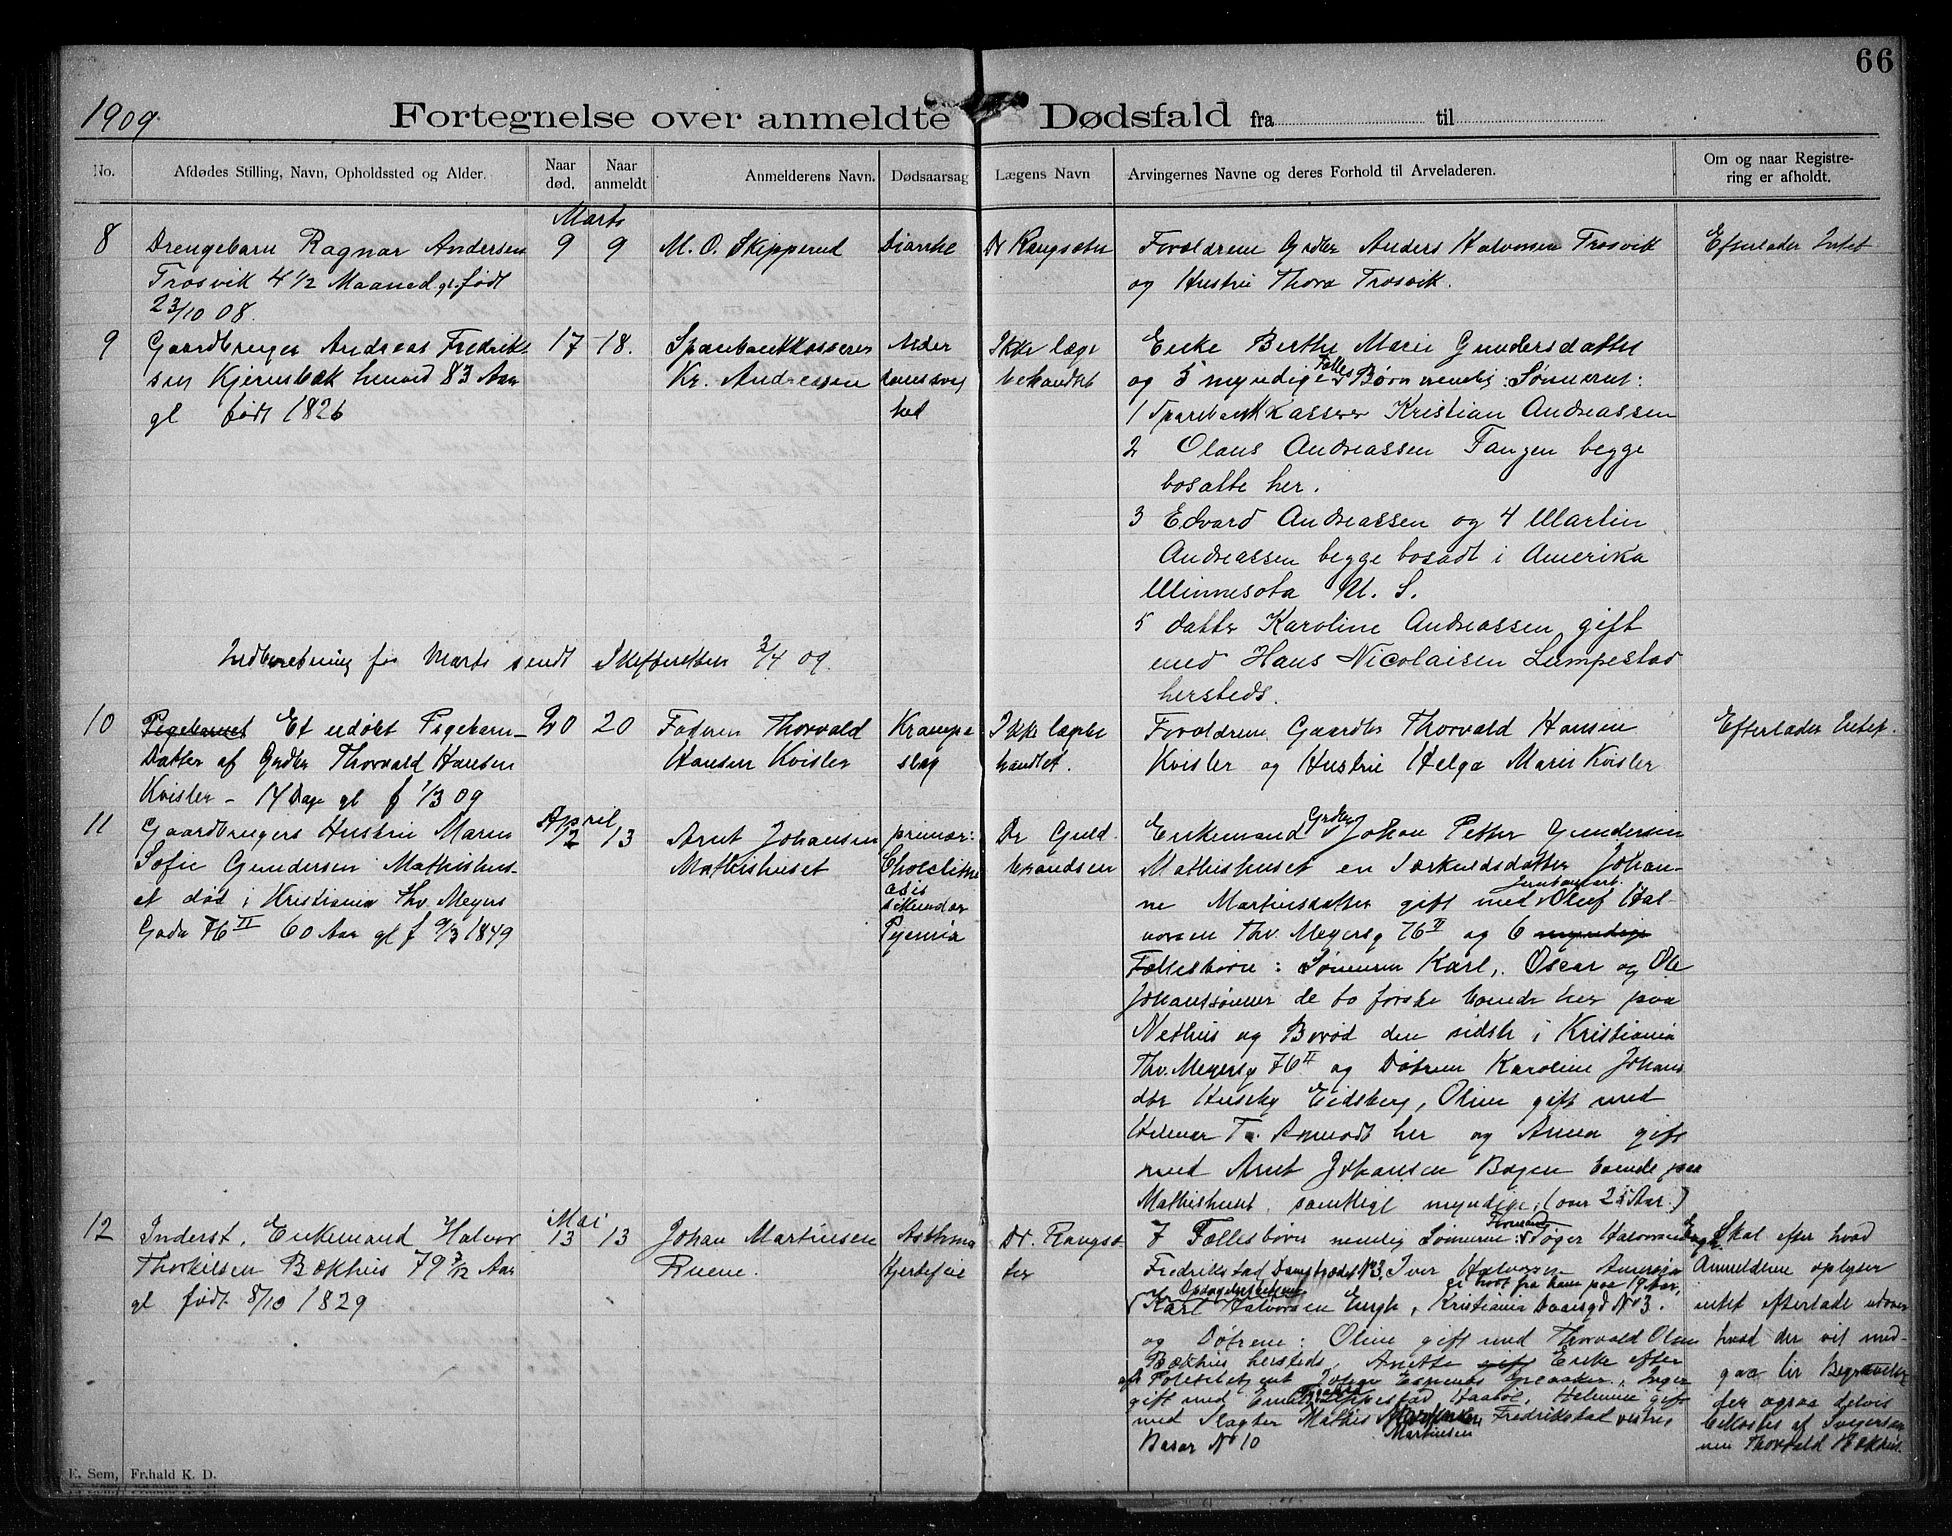 66
1909.
Fortegnelse over anmeldte Dødsfald fra til
No.
Afdødes Stilling, Navn, Opholdssted og Alder.
Naar død.
Naar anmeldt
Anmelderens Navn.
Dødsaarsag
Lægens Navn
Arvingernes Navne og deres Forhold til Arveladeren.
Om og naar Registrering er afholdt.
Marts
8
Drengebarn Ragnar Andersen
Trosvik 4 1/2 Maaned gl. født
23/10 08.
9
9
M. O. Skipperud
Diarrhe
Dr
Forældrene Grdbr Anders Halvorsen Trosvik
og Hustru Thora Trosvik.
Efterlader Intet
9
Gaardbruger Andreas Fredrik-
sen Kjernsbæk henved 83 Aar
gl født 1826
17
18.
Sparebankkasserer
Kr. Andreassen
Alder
domssvag
hed
Ikke læge
behandlet
Enke Berthe Marie Gundersdatter
og 5 myndige Fælles Børn nemlig: Sønnerne:
1 Sparebankkasserer Kristian Andreassen
2 Olaus Andreassen Tangen begge
bosatte her.
3 Edvard Andreassen og 4 Martin
Andreassen begge bosadt i Amerika
Minnesota U. S.
5 datter Karoline Andreassen gift
med Hans Nicolaisen Lumpestad
hersteds.
Indberetning for Marts sendt Skifteretten 3/4 09.
10
Pigebarnet Et udøbt Pigebarn-
Datter af Grdbr Thorvald Hansen
Kvisler - 14 Dage gl f 1/3 09
20
20
Faderen Thorvald
Hansen Kvisler
Krampe
slag
Ikke lægebe
handlet.
Forældrene Gaardbr Thorvald Hansen
Kvisler og Hustru Helga Marie Kvisler
Efterlader Intet.
April
11
Gaardbrugers Hustru Maren
Sofie Gundersen Mathishus-
et død i Kristiania Thv. Meyers
Gade 76 II 60 Aar gl f 9/3 1849
13
Arnt Johansen
Mathishuset
primær:
Cholelithi
asis
sekundær
Pyemia
Dr Guld
brandsen
Enkemand Grdbr Johan Petter Gundersen
Mathishuset en Særkuldsdatter Johan-
ne Martinsdatter gift med Jernbanearb. Oluf Hal-
vorsen Thv. Meyersg 76 II og 6 myndige
Fællesbørn: Sønnerne Karl, Oscar og Ole
Johansønner de to første boende her paa
Nethus og Borød den sidste i Kristiania
Thv. Meyersg 76 II og Døtrene Karoline Johans
dtr Huseby Eidsberg, Oline gift med
Hilmar T. Asmodt her og Anna gift
med Arnt Johansen Bøgen boende paa
Mathishuset, samtlige myndige. (over 25 Aar.)
Mai
12
Inderst, Enkemand Halvor
Thorkilsen Bækhus 79 7/12 Aar
gl født 8/10 1829
13
13
Johan Martinsen
Ruene.
Asthma
Hjertefeil
Dr. Rangsæ
ter
7 Fællesbørn nemlig Sønnerne: Halvorsen Engh
Fredrikstad No 3, Iver Halvorsen Amerika
ei hørt fra ham paa 19 Aar,
Karl Halvorsen Engh, Kristiania No 3.
og Døtrene: Oline gift med Thorvald Olsen
Bækhus hersteds, Anette gift Enke efter
Politibetjent Johan , Inger
gift med Emil Lippestad , Helmine gift
med Slagter Mathis Martinsen Fredrikstad vestre
Basar No 10
Skal efter hvad
Anmelderne oplyser
intet efterlade udover
hvad der vil med-
gaa til Begravelse
der ogsaa delvis
bekostes af Svigersøn
nen Thorvald Bækhus.
E. Sem, Fr.hald K. D.